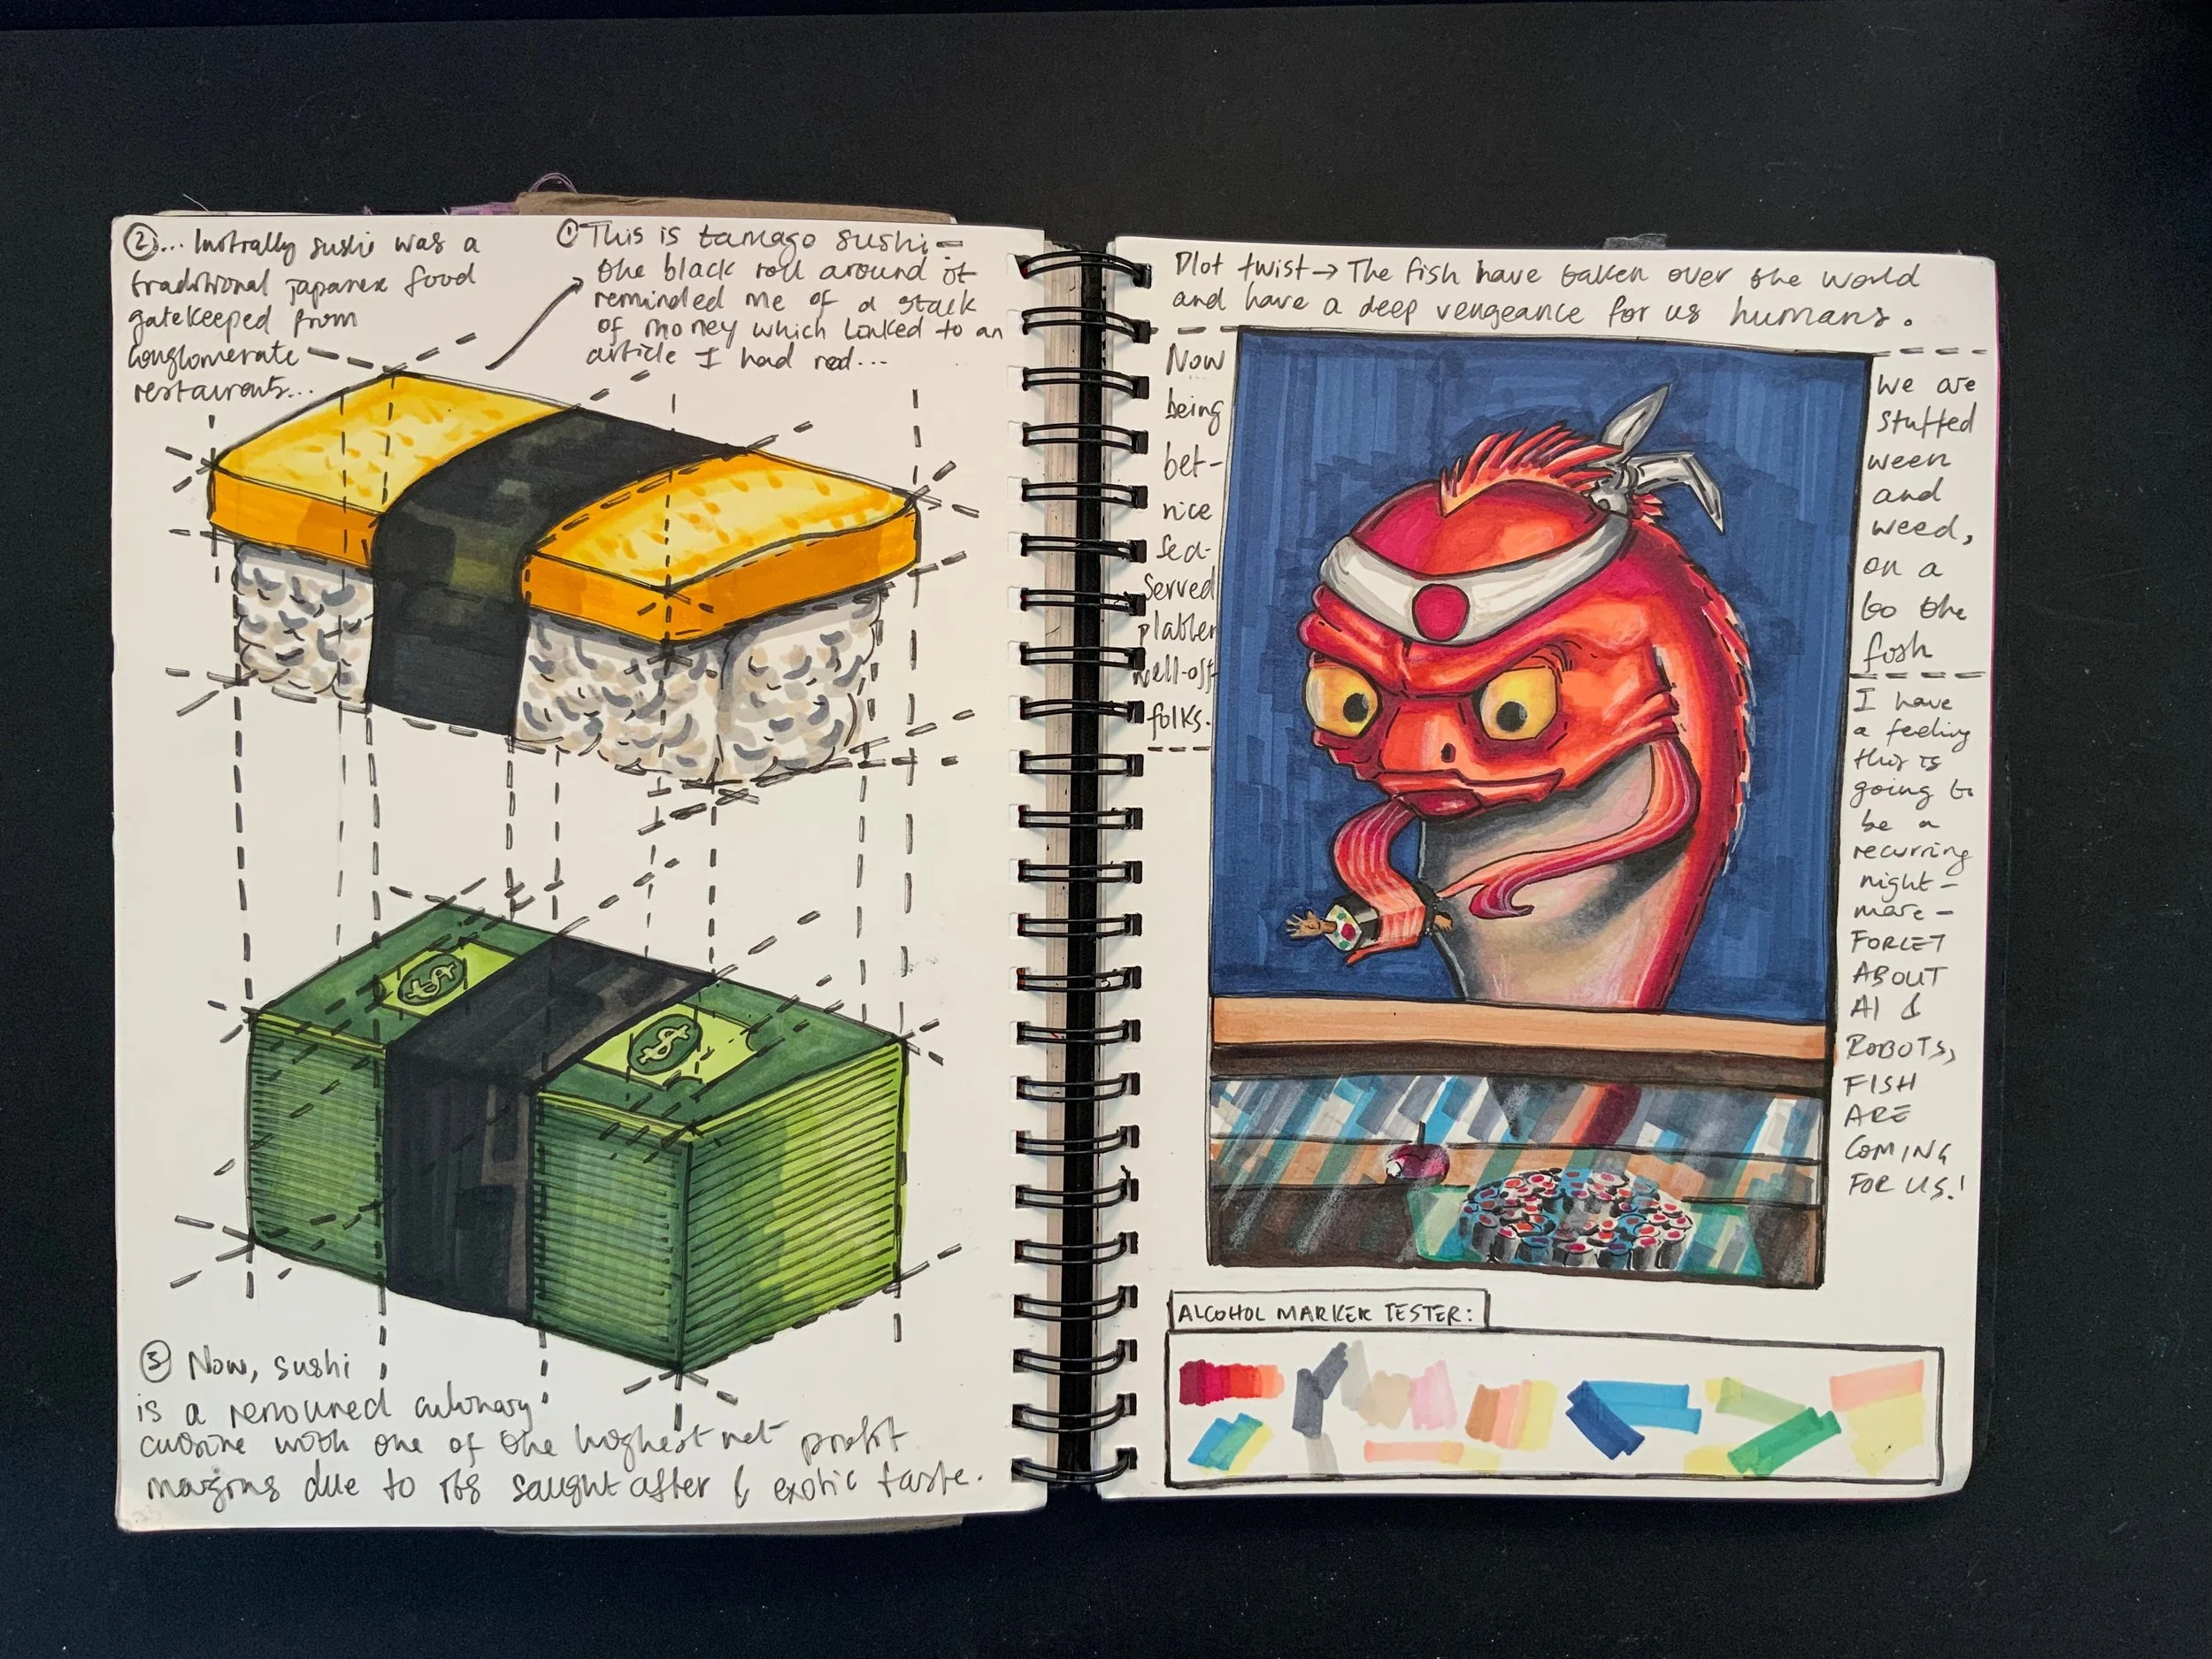 ① This is tamago sushi –
the black roll around it
reminded me of a stack
of money which linked to an
article I had read...
②... Initially sushi was a
traditional japanese food
gatekeeped from
conglomerate
restaurants...
③ Now, sushi
is a renouned culinary
cuisine with one of the highest net profit
margins due to its saught after & exotic taste.
Plot twist → The fish have taken over the world
and have a deep vengeance for us humans.
Now we are
being stuffed
bet- ween
rice and
sea- weed,
Served on a
platter to the
well-off fish
folks.
I have
a feeling
this is
going to
be a
recurring
night-
mare –
FORGET
ABOUT
AI &
ROBOTS,
FISH
ARE
COMING
FOR US!
$
$
ALCOHOL MARKER TESTER: